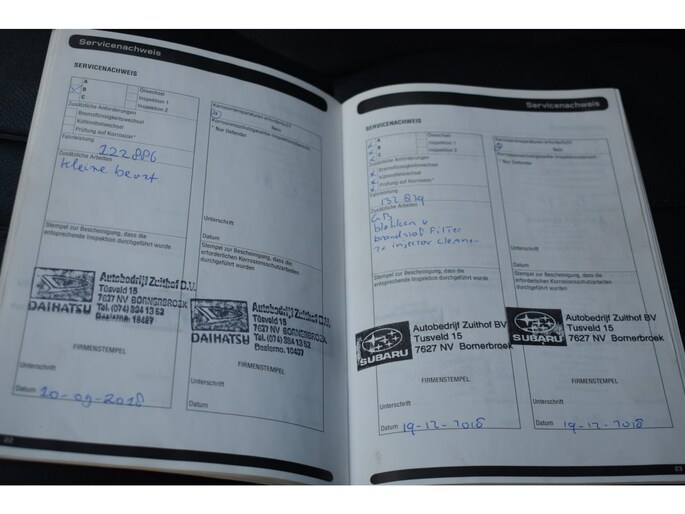 Servicenachweis
SERVICENACHWEIS
A
B
C
Ölwechsel
Inspektion 1
Inspektion 2
Zusätzliche Anforderungen
Bremsflüssigkeitswechsel
Kühlmittelwechsel
Prüfung auf Korrosion*
Fahrleistung
122896
Zusätzliche Arbeiten
kleine beurt
Stempel zur Bescheinigung, dass die
entsprechende Inspektion durchgeführt wurde
DAIHATSU
Autobedrijf Zuithof B.V.
Tusveld 15
7627 NV BORNERBROEK
Tel. (074) 384 13 52
FIRMENSTEMPEL
Unterschrift
Datum 20-09-2018
22
Karosseriereparaturen erforderlich?
Ja
Nein
* Nur Defender
Unterschrift
Stempel zur Bescheinigung, dass die
erforderlichen Korrosionsschutzarbeiten
durchgeführt wurden
DAIHATSU
Autobedrijf Zuithof B.V.
Tusveld 15
7627 NV BORNERBROEK
Tel. (074) 384 13 52
FIRMENSTEMPEL
Unterschrift
Datum
Servicenachweis
SERVICENACHWEIS
A
B
C
Ölwechsel
Inspektion 1
Inspektion 2
Zusätzliche Anforderungen
Bremsflüssigkeitswechsel
Kühlmittelwechsel
Prüfung auf Korrosion*
Fahrleistung
132829
Zusätzliche Arbeiten
GB
blokken v
brandstof Filter
1x injector cleaner
Stempel zur Bescheinigung, dass die
entsprechende Inspektion durchgeführt wurde
SUBARU
Autobedrijf Zuithof BV
Tusveld 15
7627 NV Bornerbroek
FIRMENSTEMPEL
Unterschrift
Datum 19-12-2018
Karosseriereparaturen erforderlich?
Nein
* Nur Defender
Unterschrift
Stempel zur Bescheinigung, dass die
erforderlichen Korrosionsschutzarbeiten
durchgeführt wurden
SUBARU
Autobedrijf Zuithof BV
Tusveld 15
7627 NV Bornerbroek
FIRMENSTEMPEL
Unterschrift
Datum 19-12-2018
23